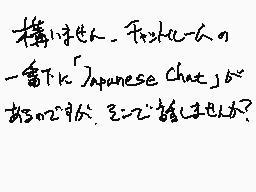 構いません。チャットルームの
一番下に「Japanese Chat」が
あるのですが、そこで話しませんか？